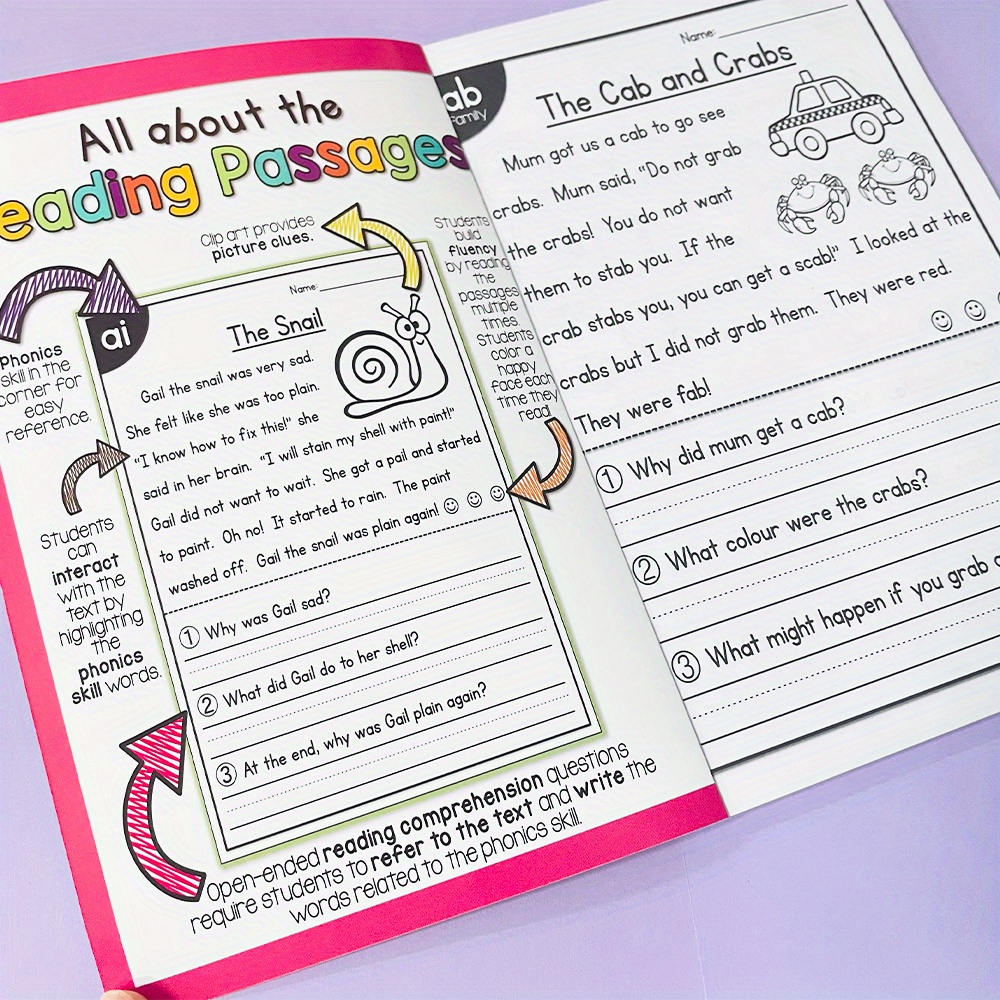 All about the
eading Passages
Clip art provides
picture clues.
Students
build
fluency
by reading
the
passages
multiple
times.
Students
color a
happy
face each
time they
read!
Phonics
skill in the
corner for
easy
reference.
Students
can
interact
with the
text by
highlighting
the
phonics
skill words.
Name:
ai
The Snail
Gail the snail was very sad.
She felt like she was too plain.
"I know how to fix this!" she
said in her brain. "I will stain my shell with paint!"
Gail did not want to wait. She got a pail and started
to paint. Oh no! It started to rain. The paint
washed off. Gail the snail was plain again!
1 Why was Gail sad?
2 What did Gail do to her shell?
3 At the end, why was Gail plain again?
Open-ended reading comprehension questions
require students to refer to the text and write the
words related to the phonics skill.
Name:
ab
Family
The Cab and Crabs
Mum got us a cab to go see
crabs. Mum said, "Do not grab
the crabs! You do not want
them to stab you. If the
crab stabs you, you can get a scab!" I looked at the
crabs but I did not grab them. They were red.
They were fab!
1 Why did mum get a cab?
2 What colour were the crabs?
3 What might happen if you grab a